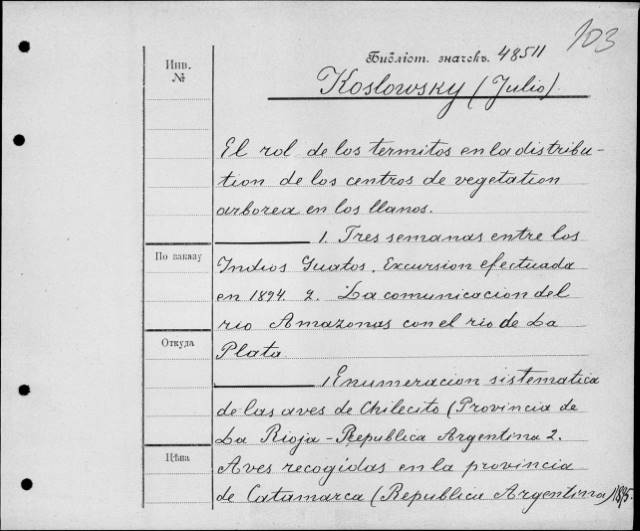 103
Библіот. значекъ. 48511
Инв.
№
Koslowsky (Julio).
El rol de los termitos en la distribu-
tion de los centros de vegetation
arborea en los llanos.
1. Tres semanas entre los
По заказу
Indios Guatos. Excursion efectuada
en 1894. 2. La comunicacion del
rio Amazonas con el rio de La
Откуда
Plata.
1 Enumeracion sistematica
de las aves de Chilecito (Provincia de
La Rioja - Republica Argentina 2.
Цѣна
Aves recogidas en la provincia
de Catamarca (Republica Argentina) 1895.